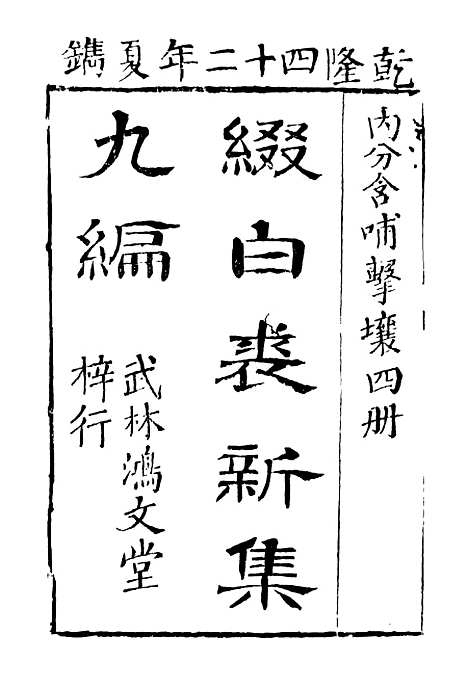 乾隆四十二年夏鐫
内分含哺擊壤四册
綴白裘新集
九編
武林鴻文堂
梓行